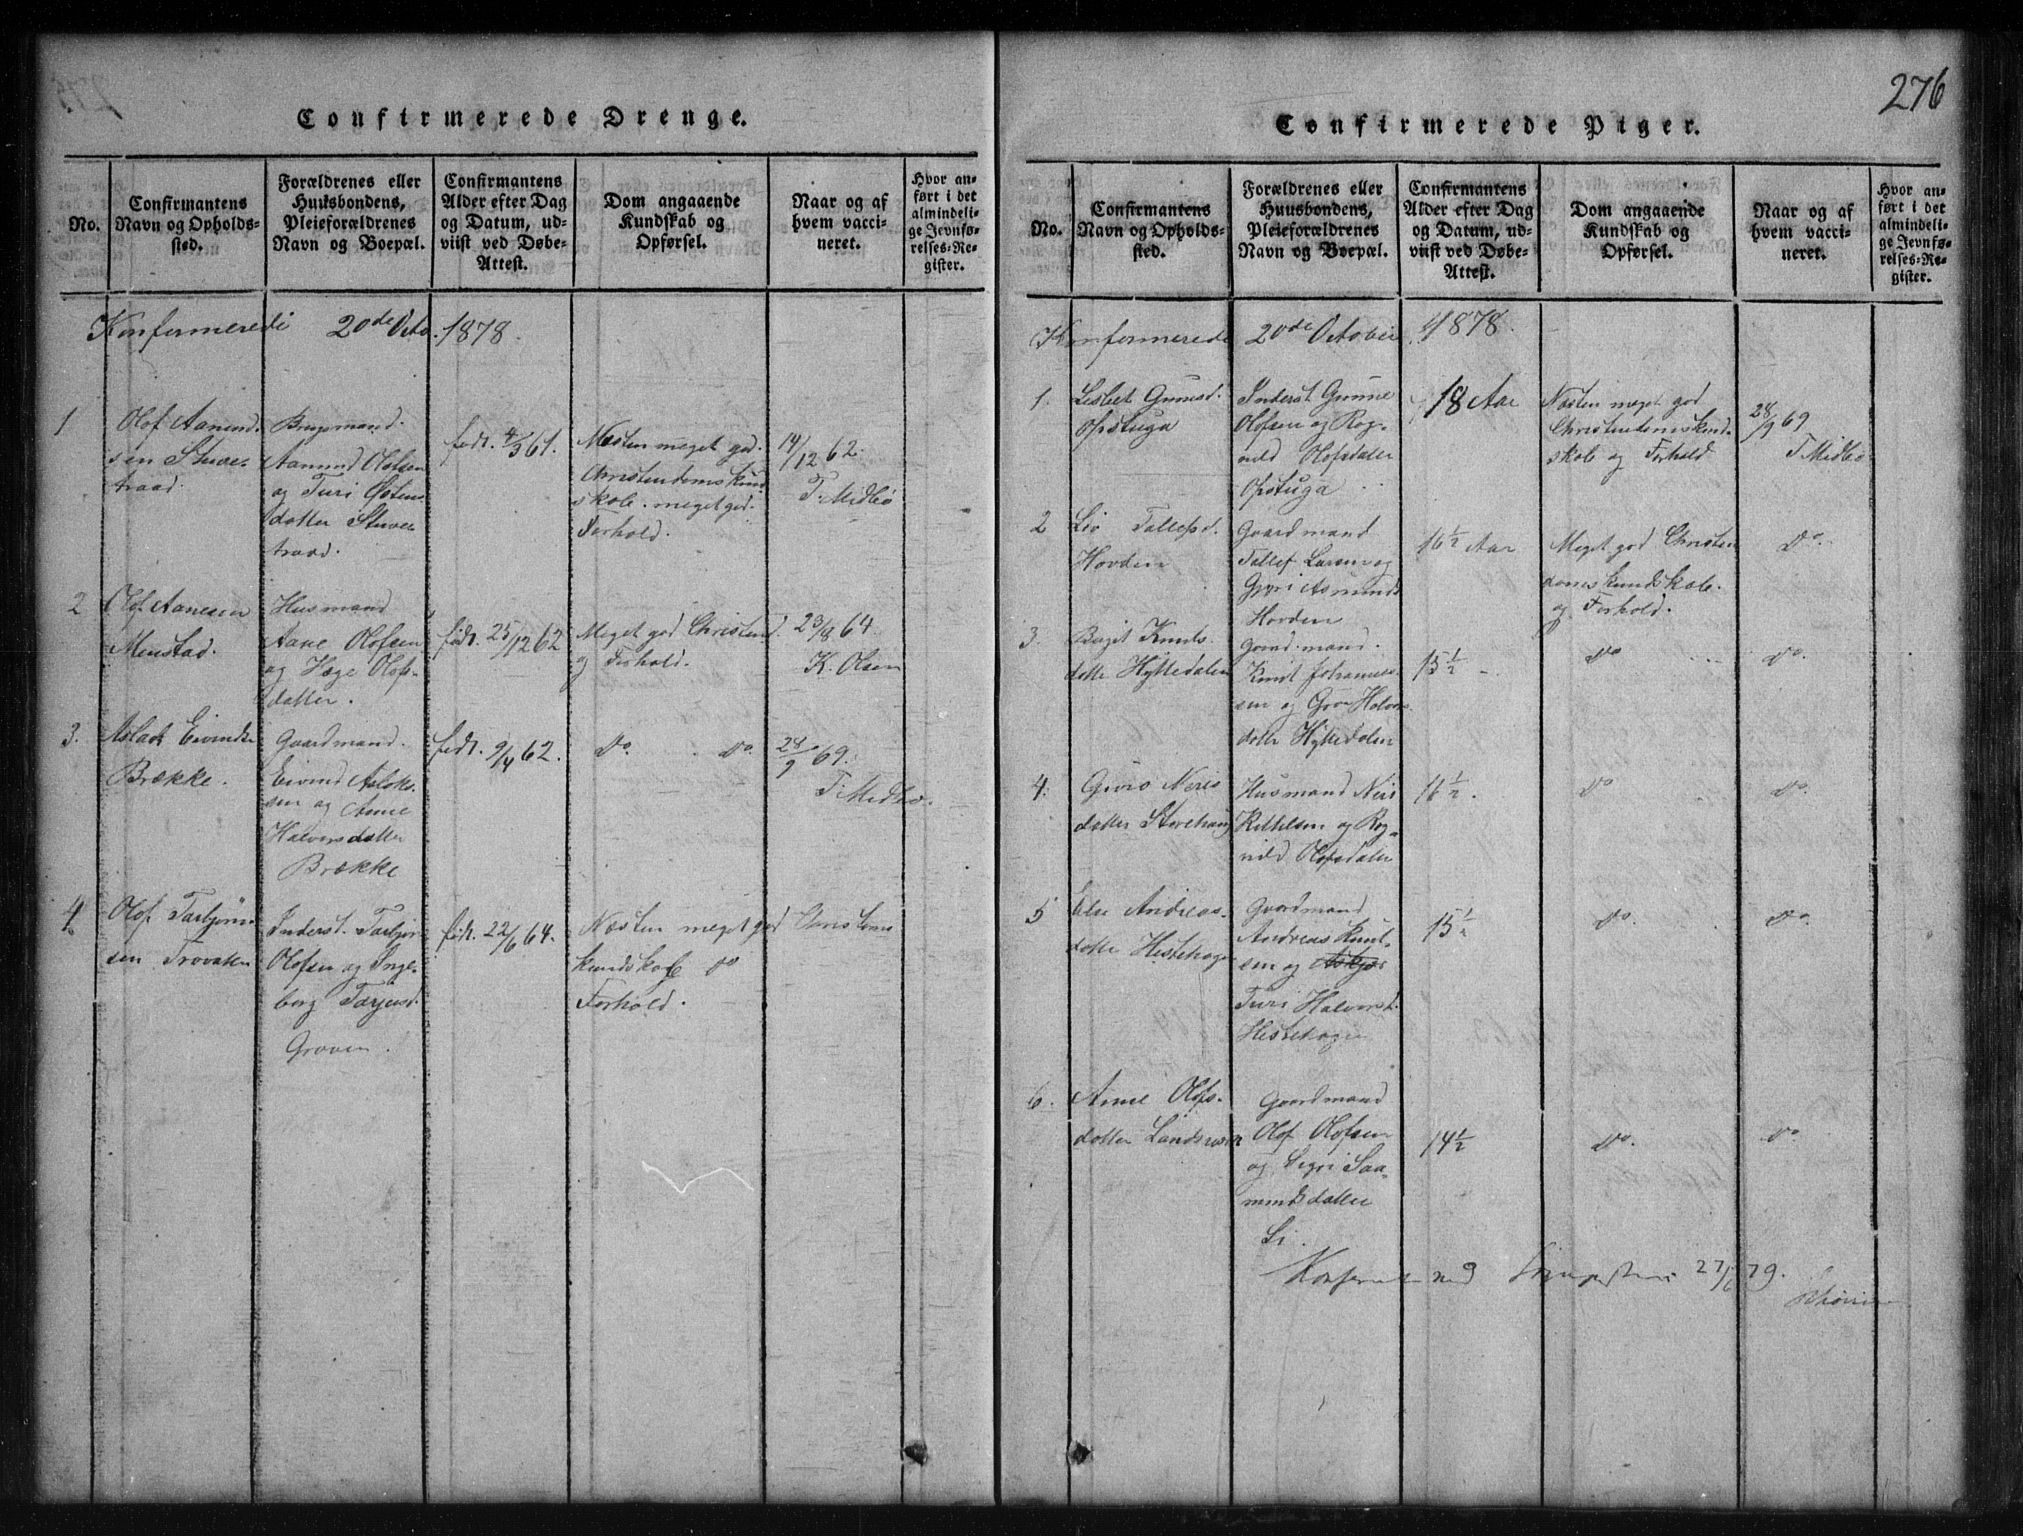 Confirmerede Drenge.
No.
Confirmantens
Navn og Opholds-
sted.
Forældrenes eller
Huusbondens,
Pleieforældrenes
Navn og Boepæl.
Confirmantens
Alder efter Dag
og Datum, ud-
viist ved Døbe-
Attest.
Dom angaaende
Kundskab og
Opførsel.
Naar og af
hvem vacci-
neret.
Hvor an-
ført i det
almindeli-
ge Jevnfø-
relses-Re-
gister.
Konfermerede 20de Octo. 1878.
1
Olof Aamund-
sen
traad.
Brugsmand.
Aamund Olofsen
og Turi Østens
datter
traad.
født. 4/3 61.
Næsten meget god
Christendomskund
skab. meget god
Forhold.
14/12 62.
T. Midbø
2
Olof Aanesen
Menstad.
Husmand
Aane Olofsen
og Hæge Olofs-
datter.
født. 25/12 62
Meget god Christend.
og Forhold.
23/8 64.
K. Olsen
3.
Aslak Eivinds.
Brække.
Gaardmand.
Eivind Aslaks-
sen og Anne
Halvorsdatter
Brække
født. 9/4 62.
do. do.
28/9 69.
T. Midbø.
4
Olof Tarbjøns-
sen Trovaten
Inderst. Tarbjøn
Olofsen og Inge-
borg Tarjeisd.
Groven.
født. 22/6 64.
Næsten meget god Christoms
kundskab do
Forhold.
276
Confirmerede Piger.
No.
Confirmantens
Navn og Opholds-
sted.
Forældrenes eller
Huusbondens,
Pleieforældrenes
Navn og Boepæl.
Confirmantens
Alder efter Dag
og Datum, ud-
viist ved Døbe-
Attest.
Dom angaaende
Kundskab og
Opførsel.
Naar og af
hvem vacci-
neret.
Hvor an-
ført i det
almindeli-
ge Jevnfø-
relses-Re-
gister.
Konfermerede 20de October 1878.
1.
Lisbet Gunusd.
Opstuga
Inderst Gunne
Olofsen og Rog-
nild Olofsdatter
Opstuga
18 Aar
Næsten meget god
Christendomskund-
skab og Forhold
28/9 69
T Midbø
2
Liv Tallefsd.
Hovden
Gaardmand
Tallef Larsen og
Gyri Asmunds
Hovden
16 1/2 Aar
Meget god Christen
domskundskab.
og Forhold.
do.
3.
Bergit Knuts-
datte Hyttedalen
Gaardmand.
Knut Johannes-
sen og Gro Halvors
datte Hyttedalen
15 1/2 -
do
do.
4.
Guro Neris
datter Storehaug
Husmand Neri
Kittilsen og Rog-
nild Olofsdatter
16 1/2.
do
do.
5
Else Andreas-
datte Hestehagen
Gaardmand
Andreas Knut-
sen og Askjer
Turi Halvorsd.
Hestehagen
15 1/2
do.
do.
6.
Anne Olofs-
datter
Gaardmand
Olof Olofsen
og Sigri Saa-
mundsdatter
Li.
14 1/2
do.
do
27/6 79.